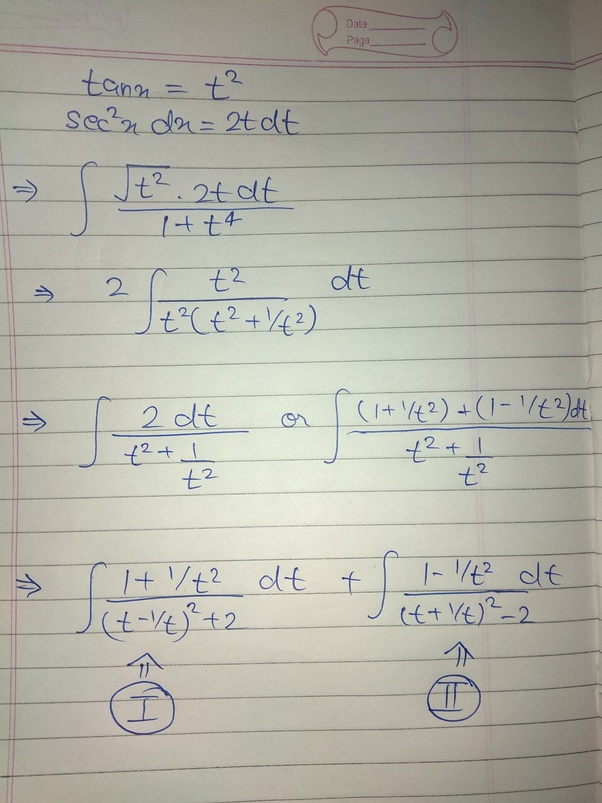 Date
Page
tanx = t²
sec²x dx = 2t dt
⇒ ∫ √t² · 2t dt / 1 + t⁴
⇒ 2 ∫ t² / t²(t² + 1/t²) dt
⇒ ∫ 2 dt / t² + 1/t² or ∫ (1 + 1/t²) + (1 - 1/t²)dt / t² + 1/t²
⇒ ∫ 1 + 1/t² / (t - 1/t)² + 2 dt + ∫ 1 - 1/t² dt / (t + 1/t)² - 2
⇑ ⇑
I II